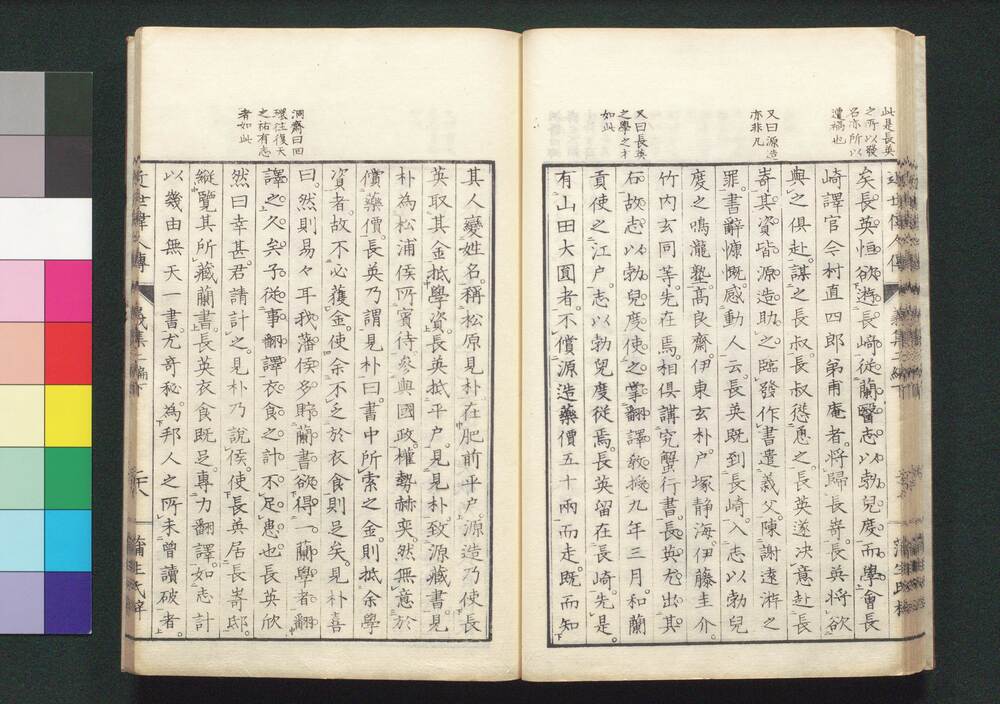 此是長英
之所以發
名亦所以
遭禍也
又曰源造
亦非凡
又曰長英
之學之才
如此
矣長英恒欲遊長崎從蘭醫志以勃兒度而學會長
崎譯官今村直四郎弟甫庵者將歸長嵜長英將欲
與之俱赴謀之長叔長叔慫慂之長英遂决意赴長
嵜其資皆源造助之臨發作書遣義父陳謝遠遊之
罪書辭慷慨感動人云長英既到長崎入志以勃兒
度之鳴瀧塾高良齋伊東玄朴戶塚静海伊藤圭介
竹内玄同等先在焉相俱講究蟹行書長英尤出其
右故志以勃兒度使之掌翻譯敎授九年三月和蘭
貢使之江户志以勃兒度從焉長英留在長崎先是
有山田大圓者不償源造藥價五十兩而走既而知
洞齋曰四
環往復天
之祐有志
者如此
其人變姓名稱松原見朴在肥前平户源造乃使長
英取其金抵學資長英抵平户見見朴致源藏書見
朴為松浦侯所賓待參與國政權勢赫奕然無意於
償藥價長英乃謂見朴曰書中所索之金則抵余學
資者故不必獲金使余不乏於衣食則足矣見朴喜
曰然則易々耳我藩侯多貯蘭書欲得一蘭學者翻
譯之久矣子從事翻譯衣食之計不足患也長英欣
然曰幸甚君請計之見朴乃說侯使長英居長嵜邸
縦覽其所藏蘭書長英衣食既足專力翻譯如志計
以幾由無天一書尤奇秘為邦人之所未曾讀破者
近世偉人傳
義集二編下
二十八
蒲生氏梓